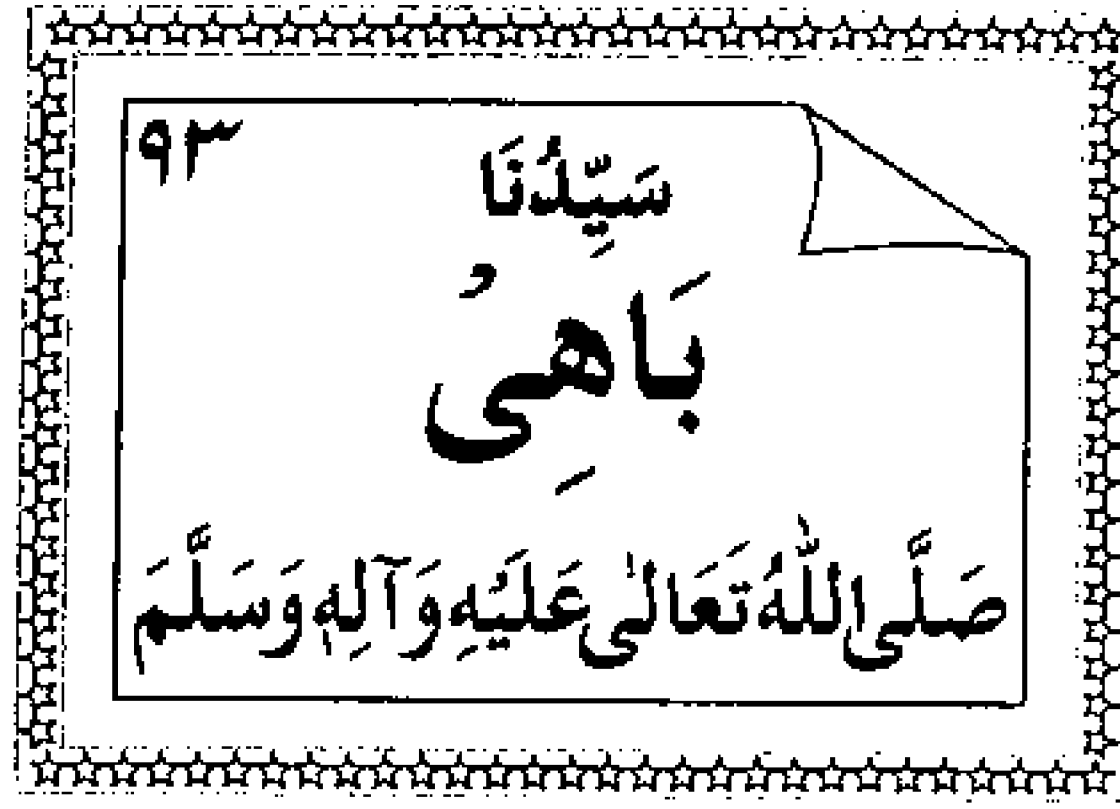 ۹۳
سَیِّدُنَا
بَاهِیُ
صَلَّی اللّٰهُ تَعَالٰی عَلَیْهِ وَآلِهٖ وَسَلَّمَ